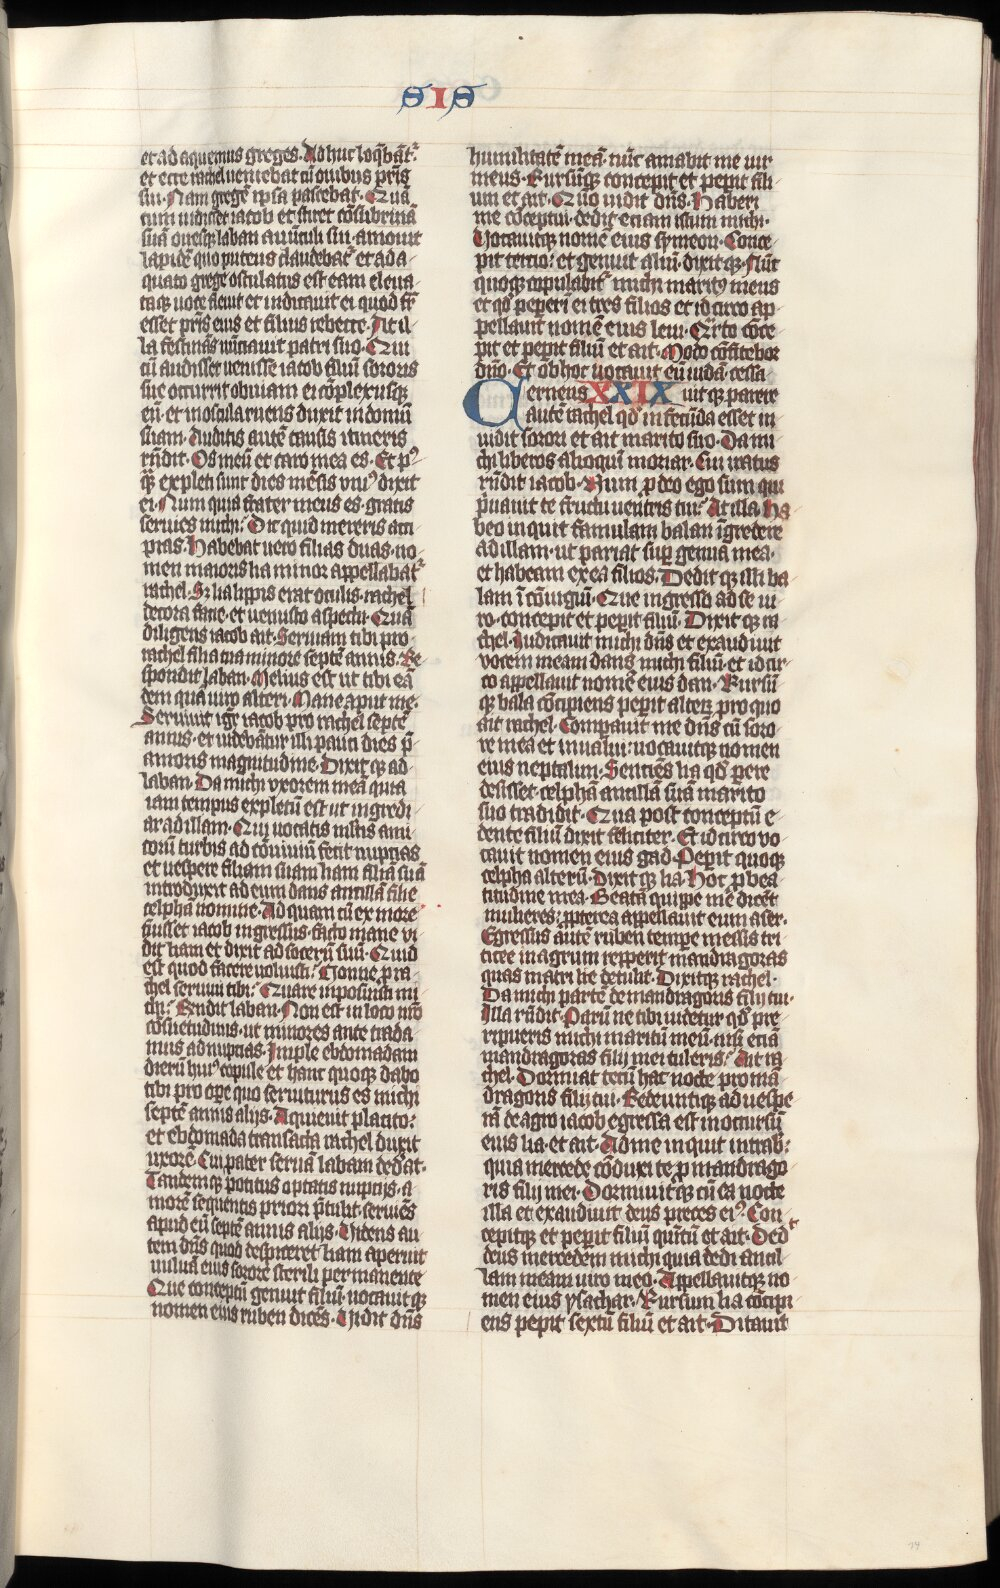 SIS
et ad aquemus greges. Ad huc loq̄bāt᷑.
et ecce rachel veniebat cū ovibus pr̄is
sui. Nam gregē ip̄sa pascebat. Quā
cum vidisset iacob et sciret cōsubrinā
suā ovesq̄ laban avūculi sui. amovit
lapidē quo puteus claudebat᷑ et ada
quato grege osculatus est eam eleua
taq̄ voce flevit et indicauit ei quod fr̄
esset pr̄is eius et filius rebecce. At il
la festinās nūciauit patri suo. Qui
cū audisset venisse iacob filiū sororis
sue occurrit obviam ei cōplexusq̄
eū et in oscula ruens duxit in domū
suam. Auditis autē causis itineris
rn̄dit. Os meū et caro mea es. Et pꝰ
q̄ expleti sunt dies mēsis vniꝰ dixit
ei. Num quia frater meus es. gratis
servies michi. Dic quid meceris acci
pias. Habebat vero filias duas. no
men maioris lia minor appellabat᷑
rachel. Sz lia lippis erat oculis. rachel
decora facie. et venusto aspectu. Quā
diligens iacob ait. Seruiam tibi pro
rachel filia tua minore septē annis. Re
spondit laban. Melius est ut tibi eā
dem quā viro alteri. Mane aput me.
Servivit igr̄ iacob pro rachel septē
annis. et videbātur illi pauci dies p̄
amoris magnitudine. Dixit q̄ ad
laban. Da michi vxorem meā quia
iam tempus expletū est ut ingredi
ar ad illam. Qui vocatis m̄ltis ami
corū turbis ad cōviviū fecit nuptias
et vespere filiam suam liam filiā suā
introduxit ad eum dans ancillā filie
celphā nomine. Ad quam cū ex more
īgisset iacob ingressus. facto mane vi
dit liam et dixit ad socerū suū. Quid
est quod facere voluisti? Nonne p ra
chel servivi tibi? Quare inposuisti mi
chi? Rn̄dit laban. Non est in loco n̄ro
cōsuetudinis. ut minores ante trada
mus ad nuptias. Imple ebdomadam
dierū huiꝰ copule et hanc quoq̄ dabo
tibi pro oꝑe quo seruiturus es michi
septē annis alijs. Aquievit placito.
et ebdomada transacta rachel duxit
uxorē. Cui pater servā labam ded̄at.
Tandemq̄ potitus optatis nuptijs. a
morē sequentis priori p̄tulit. serviēs
apud eū septē annis alijs. Videns au
tem dn̄s quod despiceret liam aperuit
vulvā eius sorore sterili permanente
Que conceptū genuit filiū. vocauit q̄
nomen eius ruben dicēs. Vidit dn̄s
humilitatē meā. nūc amabit me vir
meus. Rursūq̄ concepit et peperit fili
um et ait. Quo vidit dn̄s. Haberi
me cōceptui. dedit etiam istum michi.
Vocavitq̄ nomē eius symeon. Conce
pit tercio. et genuit aliū. dixit q̄. Nūc
quoq̄ copulabit᷑ michi maritꝰ meus
et qd̄ peperi ei tres filios et idcirco ap
pellauit nomē eius leui. Q̄rto cōce
pit et peperit filiū et ait. Modo cōfitebor
dn̄o. Et ob hoc vocauit eū iudā. cessa
Cernens XXIX uit q̄ parere
autē rachel qd̄ infecūda esset in
vidit sorori et ait marito suo. Da mi
chi liberos alioqui moriar. Cui iratus
rn̄dit iacob. Num p deo ego sum qui
p̄uauit te fructu ventris tui? At illa. ha
beo inquit famulam balan īgredere
ad illam. ut pariat suꝑ genua mea.
et habeam ex ea filios. Dedit q̄ illi ba
lam ī cōiugiū. Que ingresso ad se vi
ro. concepit et peperit filiū. Dixit q̄ ra
chel. Iudicauit michi dn̄s et exaudivit
vocem meam dans michi filiū. et idcir
co appellauit nomē eius dan. Rursū
q̄ bala cōcipiens peperit alterz. pro quo
ait rachel. Comparauit me dn̄s cū soro
re mea et invalui. vocauitq̄ nomen
eius neptalim. Sentiēs lia qd̄ perere
desisset. celphā ancillā suā marito
suo tradidit. Qua post conceptū e
dente filiū dixit feliciter. Et idcirco vo
cauit nomen eius gad. Peperit quoq̄
celpha alterū. Dixit q̄ lia. Hoc p bea
titudine mea. Beatā quippe me dicēt
mulieres. ꝓpterea appellauit eum aser.
Egressus autē ruben tempe messis tri
ticee in agrum repperit mandragoras
quas matri lie detulit. Dixitq̄ rachel.
Da michi partē de mandragoris filij tui.
Illa rn̄dit. Parū ne tibi videtur qd̄ pre
ripueris michi maritū meū. nisi etiā
mandragoras filij mei tuleris? Ait ra
chel. Dormiat tecū hac nocte pro mā
dragoris filij tui. Redeuntiq̄ ad vespe
rā de agro iacob egressa est in occursū
eius lia. et ait. Ad me inquit intrab̄.
quia mercede cōduxi te p mandrago
ris filij mei. Dormiuit q̄ cū ea nocte
illa et exaudivit deus preces eiꝰ. Con
cepitq̄ et peperit filiū quītū et ait. Dedt
deus mercedem michi quia dedi ancil
lam meam viro meo. Appellauitq̄ no
men eius ysachar. Rursum lia cōcipi
ens peperit sextū filiū et ait. Ditauit